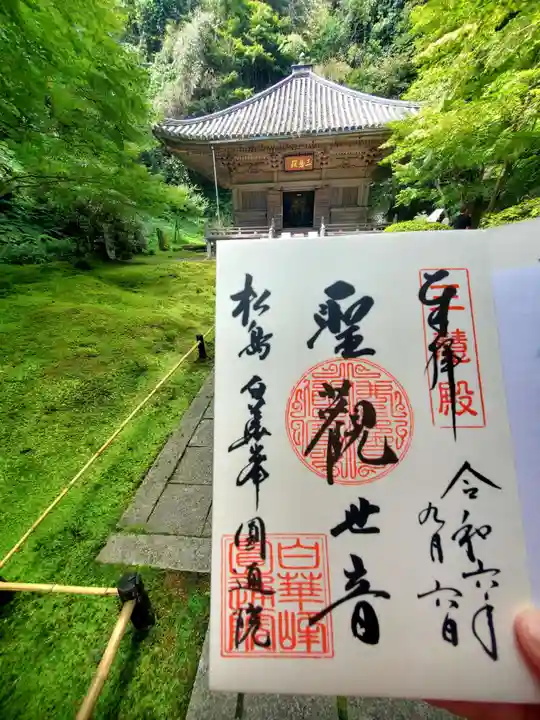 三慧殿
奉拝
三慧殿
令和六年
九月六日
聖觀世音
松島 白華峰 圓通院
白華峰
圓通院